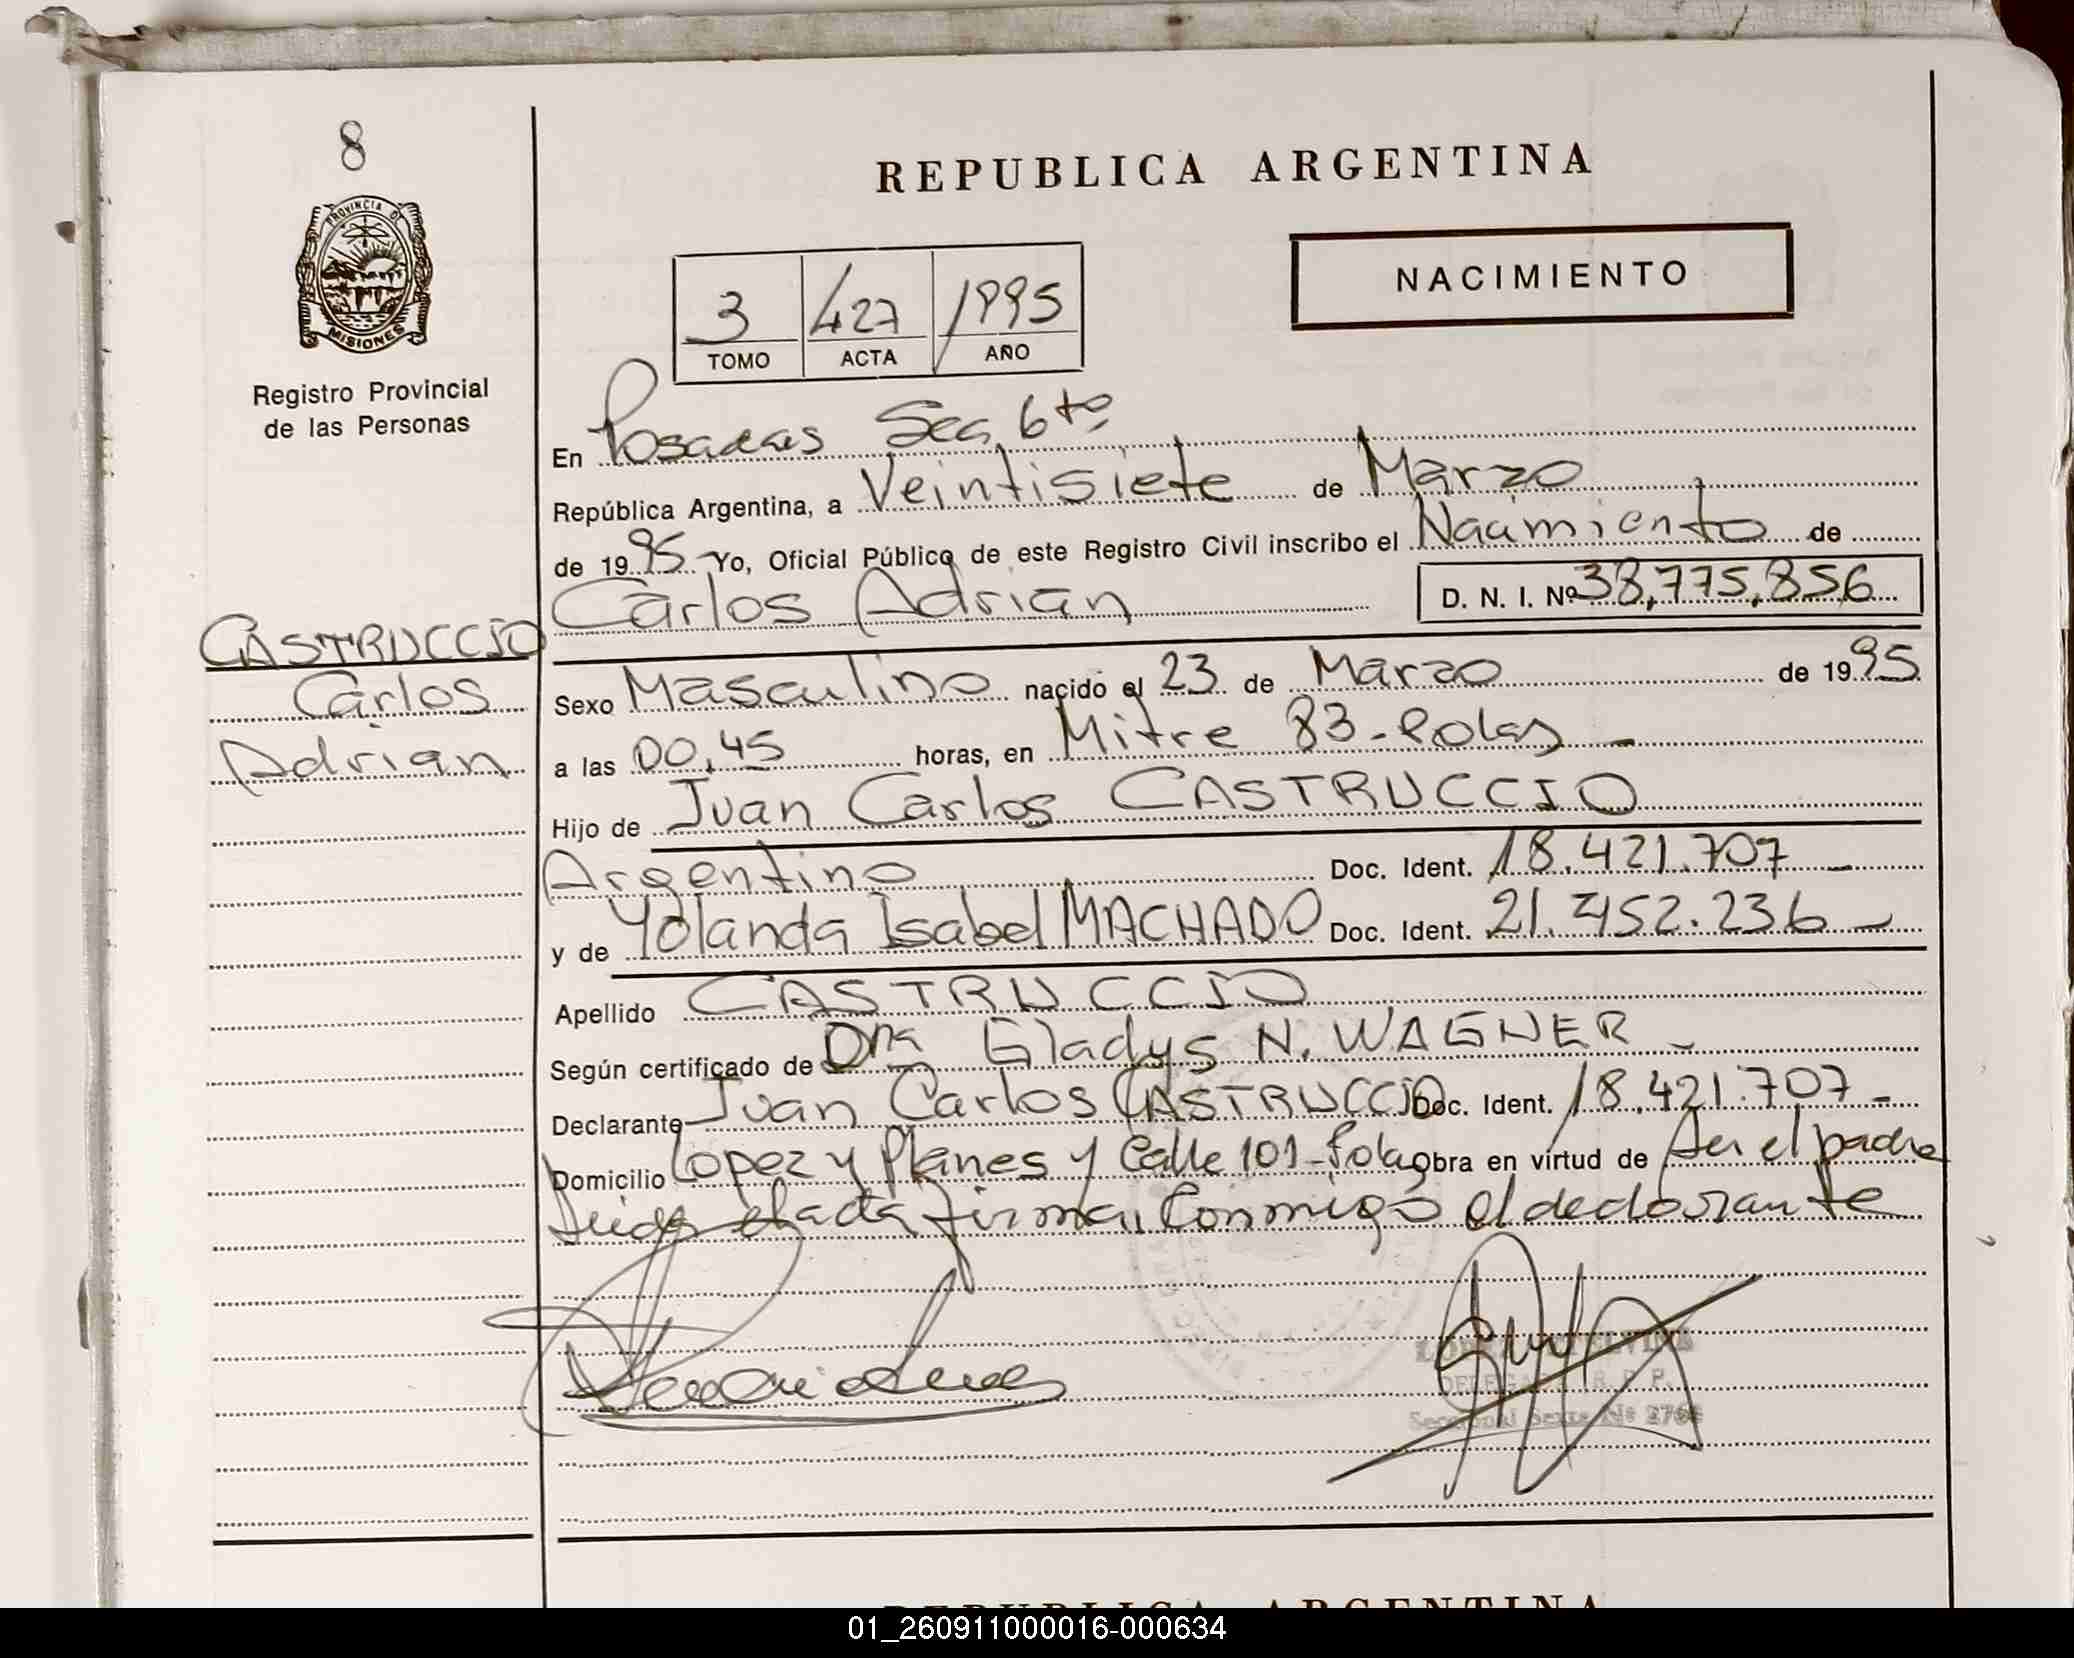 8
REPUBLICA ARGENTINA
PROVINCIA DE
MISIONES
NACIMIENTO
3 427 1995
TOMO ACTA AÑO
Registro Provincial
de las Personas
En Posadas Sec. 6ta
República Argentina, a Veintisiete de Marzo
de 1995 Yo, Oficial Público de este Registro Civil inscribo el Nacimiento de
Carlos Adrian D. N. I. Nº 38,775,856
CASTRUCCIO
Carlos
Adrian
Sexo Masculino nacido el 23 de Marzo de 1995
a las 00,45 horas, en Mitre 83-Pdas -
Hijo de Juan Carlos CASTRUCCIO
Argentino Doc. Ident. 18.421.707 -
y de Yolanda Isabel MACHADO Doc. Ident. 21.452.236 -
Apellido CASTRUCCIO
Según certificado de Dra Gladys N. WAGNER -
Declarante Juan Carlos CASTRUCCIO Doc. Ident. 18.421.707 -
Domicilio Lopez y Planes y Calle 101-Pdas Obra en virtud de ser el padre
leida el acta firma, conmigo el declarante
DELEGADA R. P. P.
Seccional Sexta Nº
REPUBLICA ARGENTINA
01_260911000016-000634